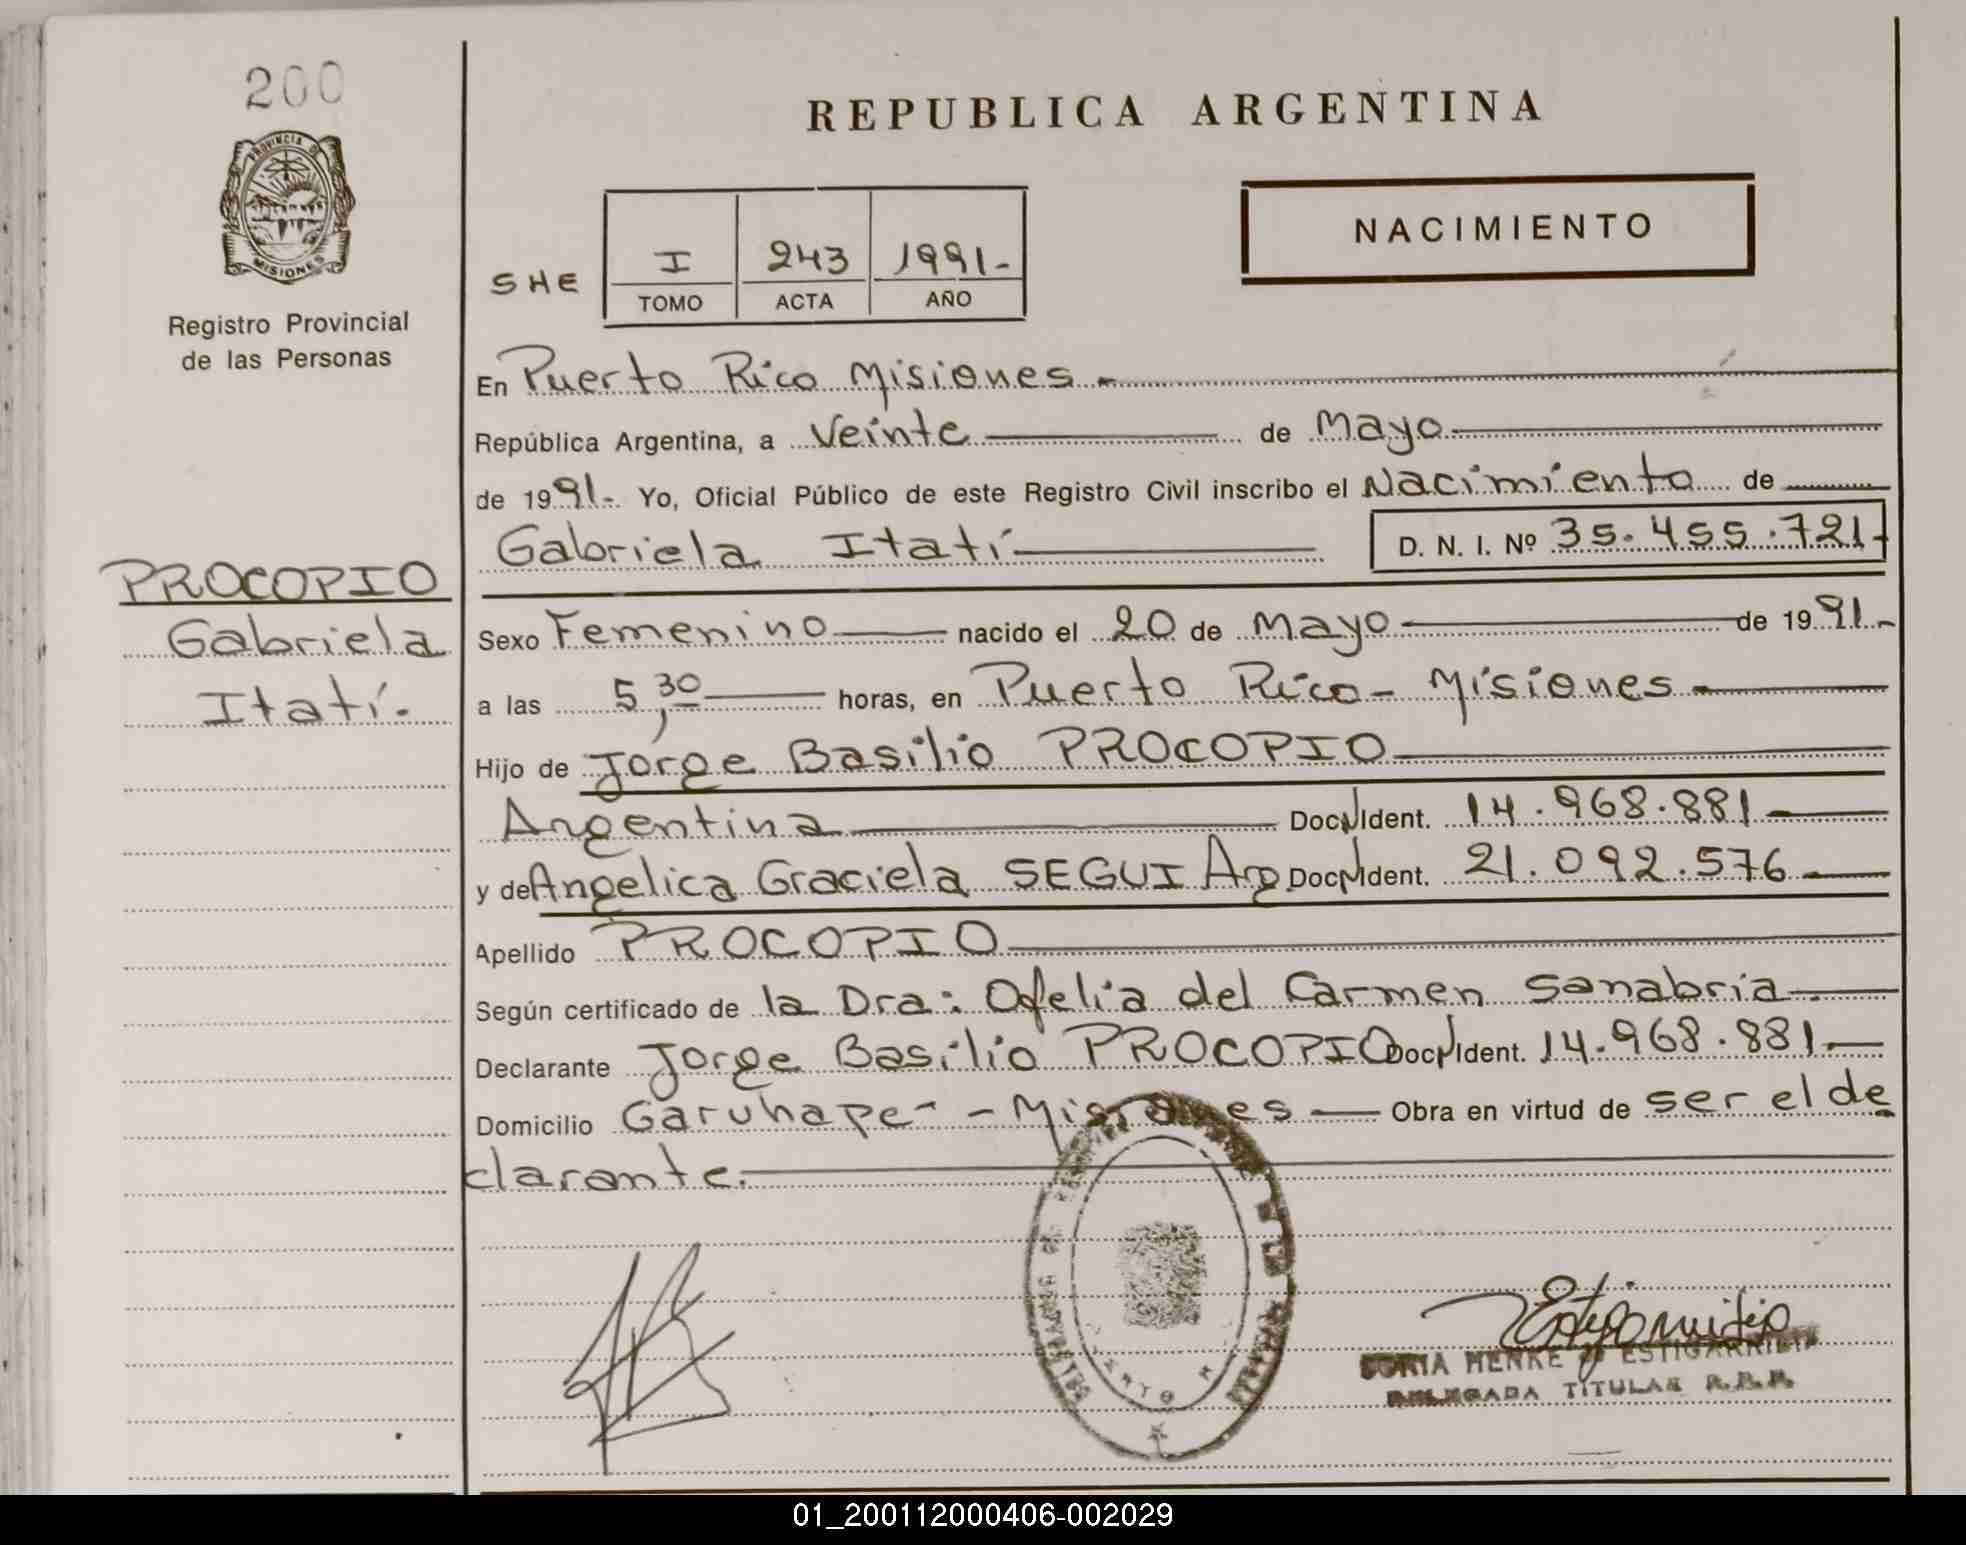 200
PROVINCIA D
MISIONES
Registro Provincial
de las Personas
PROCOPIO
Gabriela
Itatí.
REPUBLICA ARGENTINA
NACIMIENTO
SHE
I 243 1991-
TOMO ACTA AÑO
En Puerto Rico Misiones.-
República Argentina, a Veinte de Mayo
de 1991-. Yo, Oficial Público de este Registro Civil inscribo el Nacimiento de
Gabriela Itatí D. N. I. Nº 35.455.721-
Sexo Femenino nacido el 20 de Mayo de 1991.-
a las 5,30 horas, en Puerto Rico - Misiones.-
Hijo de Jorge Basilio PROCOPIO
Argentina Doc. Ident. 14.968.881-
y de Angelica Graciela SEGUI Arg Doc. Ident. 21.092.576.-
Apellido PROCOPIO
Según certificado de la Dra: Ofelia del Carmen Sanabria
Declarante Jorge Basilio PROCOPIO Doc. Ident. 14.968.881.-
Domicilio Garuhape - Misiones Obra en virtud de ser el de
clarante.
HENKE ESTIGARRIBIA
DELEGADA TITULAR
01_200112000406-002029